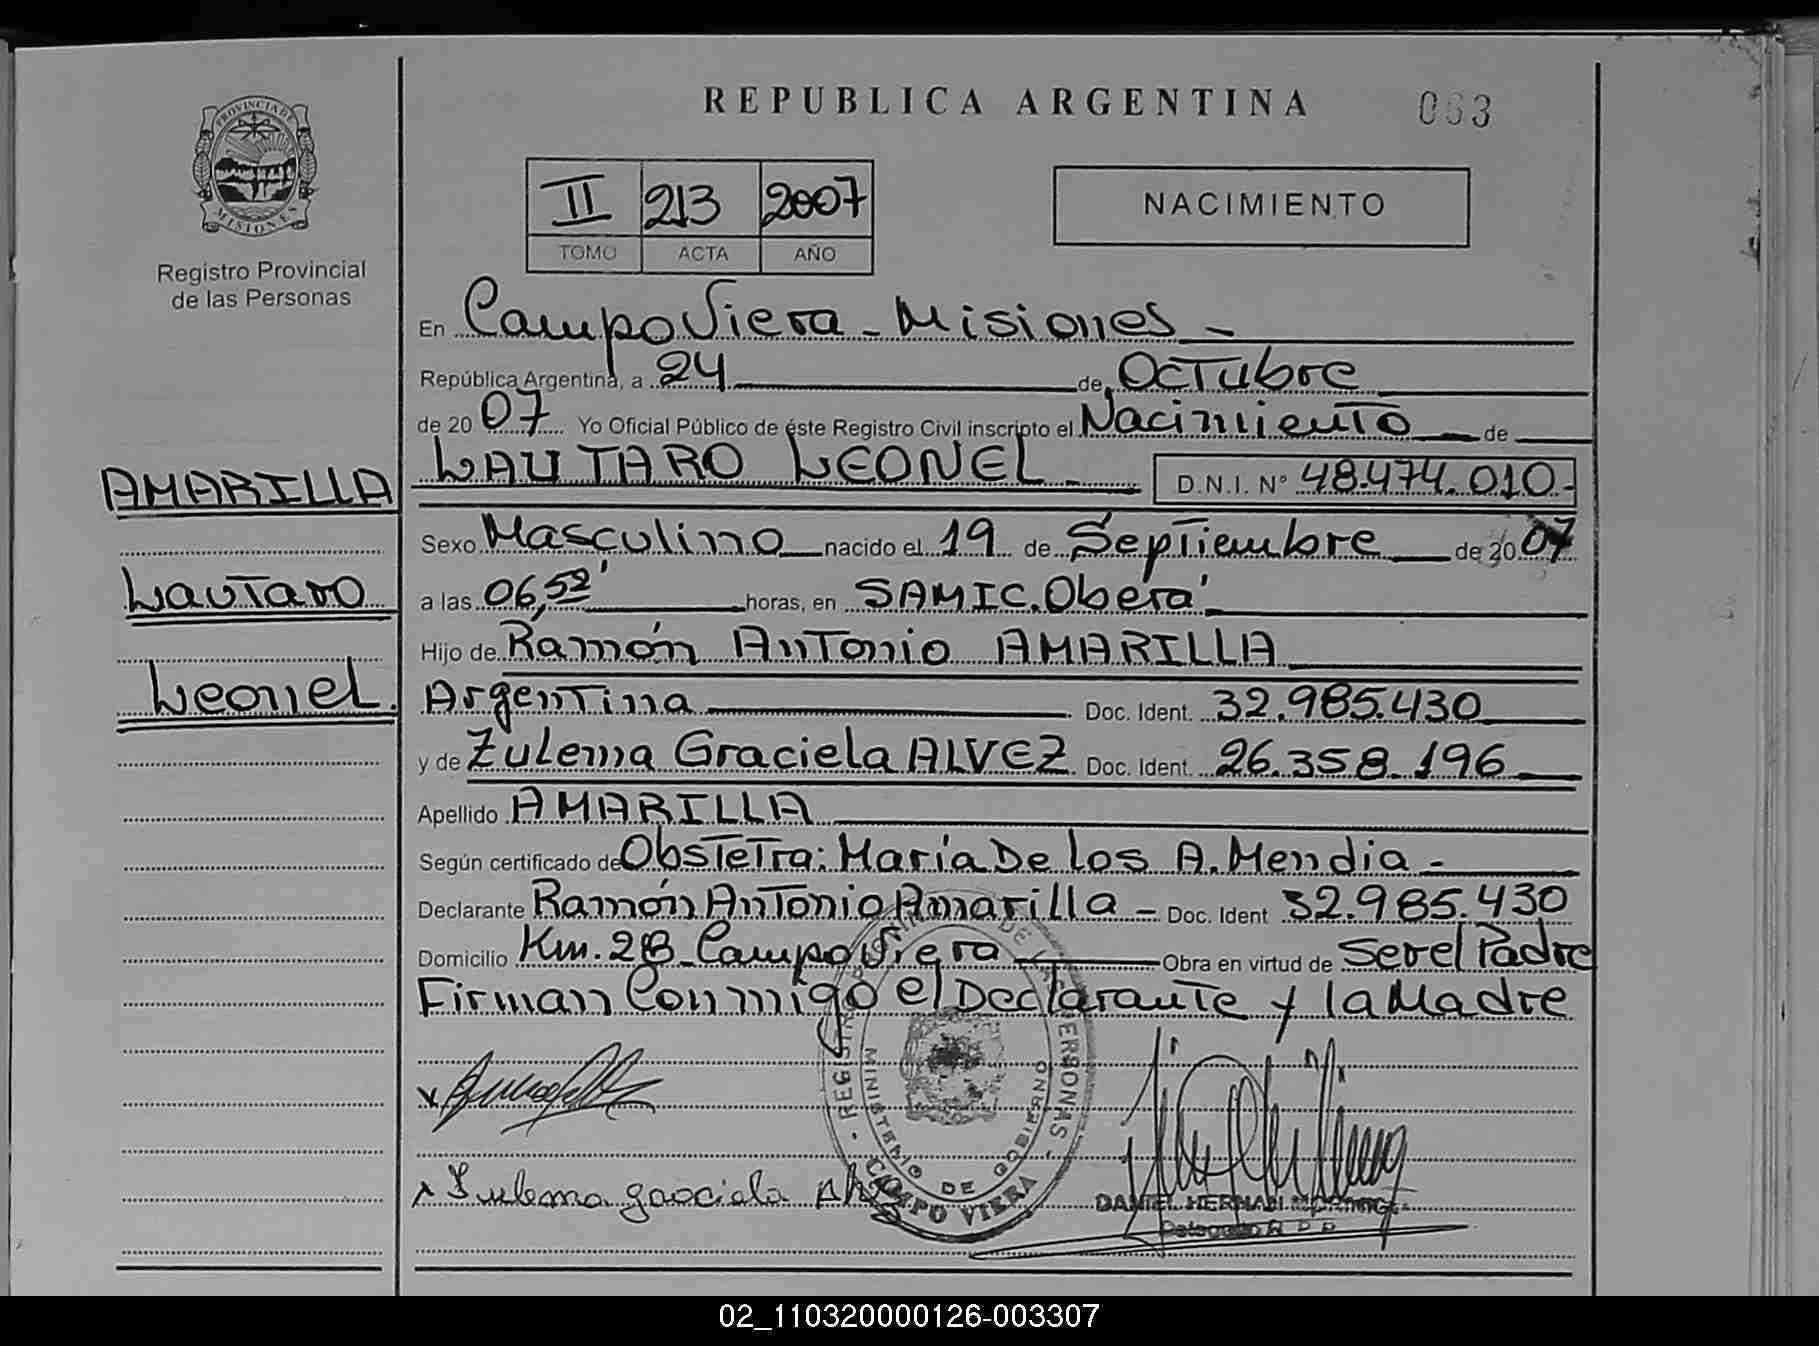 REPUBLICA ARGENTINA
063
PROVINCIA DE MISIONES
Registro Provincial
de las Personas
II 213 2007
TOMO ACTA AÑO
NACIMIENTO
En Campo Viera - Misiones -
República Argentina, a 24 de Octubre
de 2007 Yo Oficial Público de éste Registro Civil inscripto el Nacimiento de
LAUTARO LEONEL - D.N.I. N° 48.474.010.-
AMARILLA
Lautaro
Leonel.
Sexo Masculino nacido el 19 de Septiembre de 2007
a las 06,52' horas, en SAMIC. Oberá
Hijo de Ramón Antonio AMARILLA
Argentina Doc. Ident. 32.985.430
y de Zulema Graciela ALVEZ Doc. Ident. 26.358.196
Apellido AMARILLA
Según certificado de Obstetra: María De los A. Mendia -
Declarante Ramón Antonio Amarilla - Doc. Ident 32.985.430
Domicilio Km. 28 - Campo Viera Obra en virtud de Ser el Padre
Firman Conmigo el Declarante y la Madre
x
x Sulema graciela Alvez
REGISTRO PROVINCIAL DE LAS PERSONAS
MINISTERIO DE GOBIERNO
CAMPO VIERA
DANIEL HERNAN
Delegado R.P.P.
02_110320000126-003307